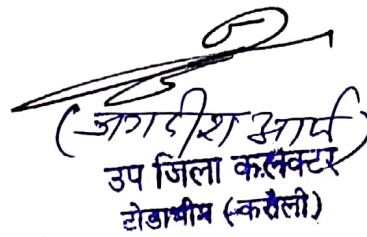 (जगदीश आर्य)
उप जिला कलक्टर
टोडाभीम (करौली)